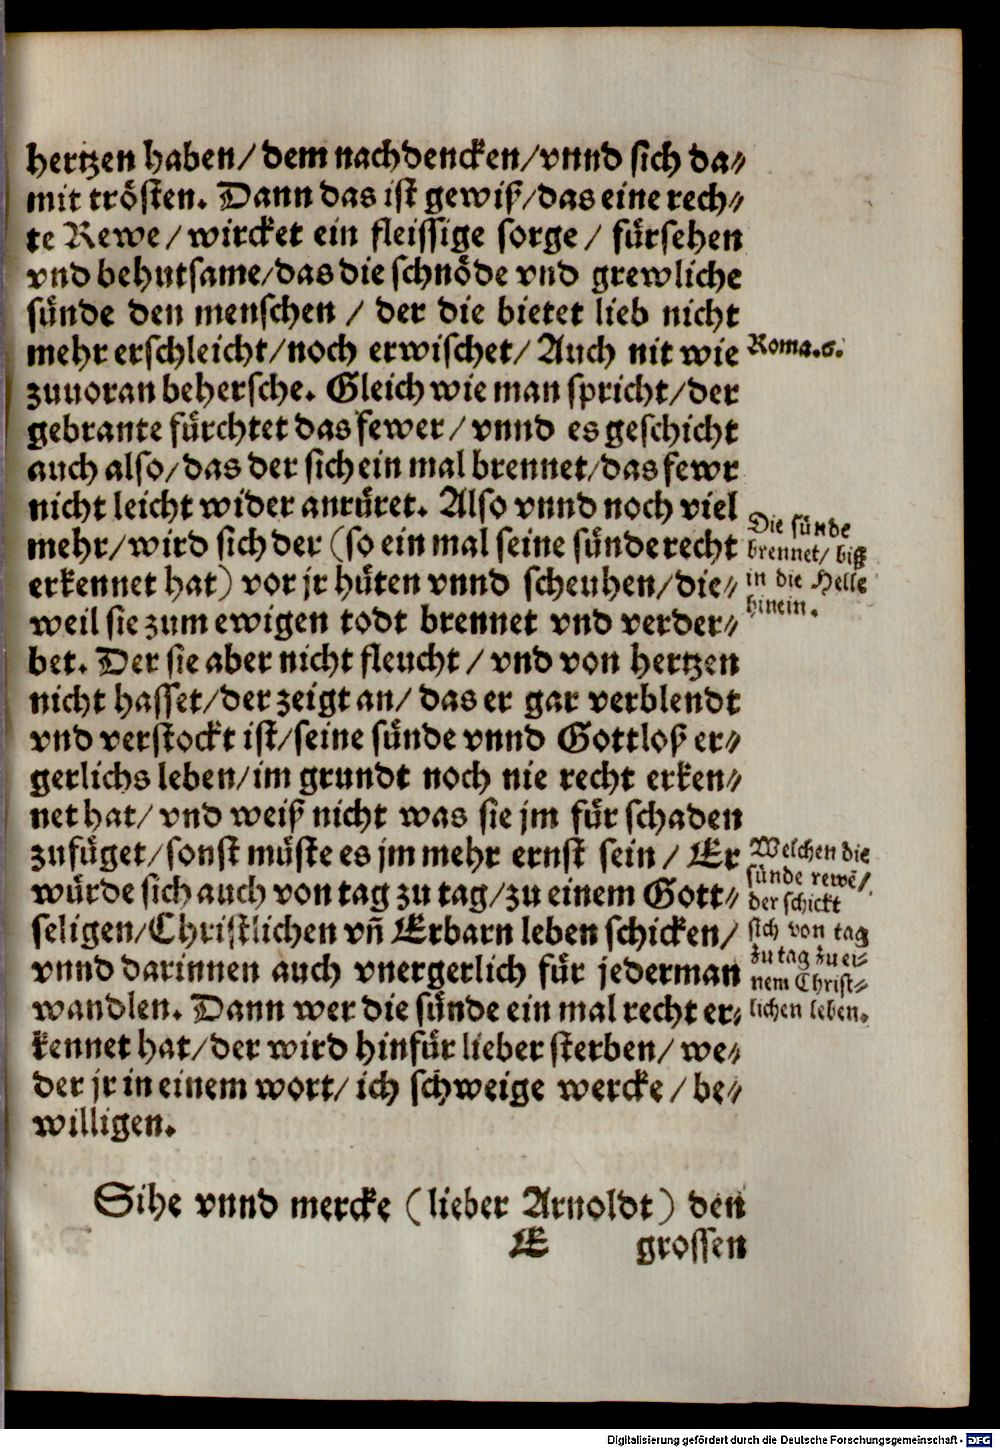 hertzen haben/ dem nachdencken/ vnnd sich da⸗
mit trösten. Dann das ist gewiß/ das eine rech⸗
te Rewe / wircket ein fleissige sorge / fürsehen
vnd behutsame/ das die schnöde vnd grewliche
sünde den menschen / der die bietet lieb nicht
mehr erschleicht/ noch erwischet/ Auch nit wie
zuuoran behersche. Gleich wie man spricht/ der
gebrante fürchtet das fewer / vnnd es geschicht
auch also/ das der sich ein mal brennet/ das fewr
nicht leicht wider anrüret. Also vnnd noch viel
mehr/ wird sich der (so ein mal seine sünde recht
erkennet hat) vor jr hüten vnnd scheuhen/ die⸗
weil sie zum ewigen todt brennet vnd verder⸗
bet. Der sie aber nicht fleucht / vnd von hertzen
nicht hasset/ der zeigt an/ das er gar verblendt
vnd verstockt ist/ seine sünde vnnd Gottloß er⸗
gerlichs leben/ im grundt noch nie recht erken⸗
net hat/ vnd weiß nicht was sie jm für schaden
zufüget/ sonst müste es jm mehr ernst sein / Er
würde sich auch von tag zu tag/ zu einem Gott⸗
seligen/ Christlichen vñ Erbarn leben schicken/
vnnd darinnen auch vnergerlich für jederman
wandlen. Dann wer die sünde ein mal recht er⸗
kennet hat/ der wird hinfür lieber sterben/ we⸗
der jr in einem wort/ ich schweige wercke / be⸗
willigen.
Sihe vnnd mercke (lieber Arnoldt) den
E grossen
Roma. 6.
Die sünde
brennet/ biß
in die Helle
hinein.
Welchen die
sünde rewẽ/
der schickt
sich von tag
zu tag zu ei⸗
nem Christ⸗
lichen leben.
Digitalisierung gefördert durch die Deutsche Forschungsgemeinschaft - DFG